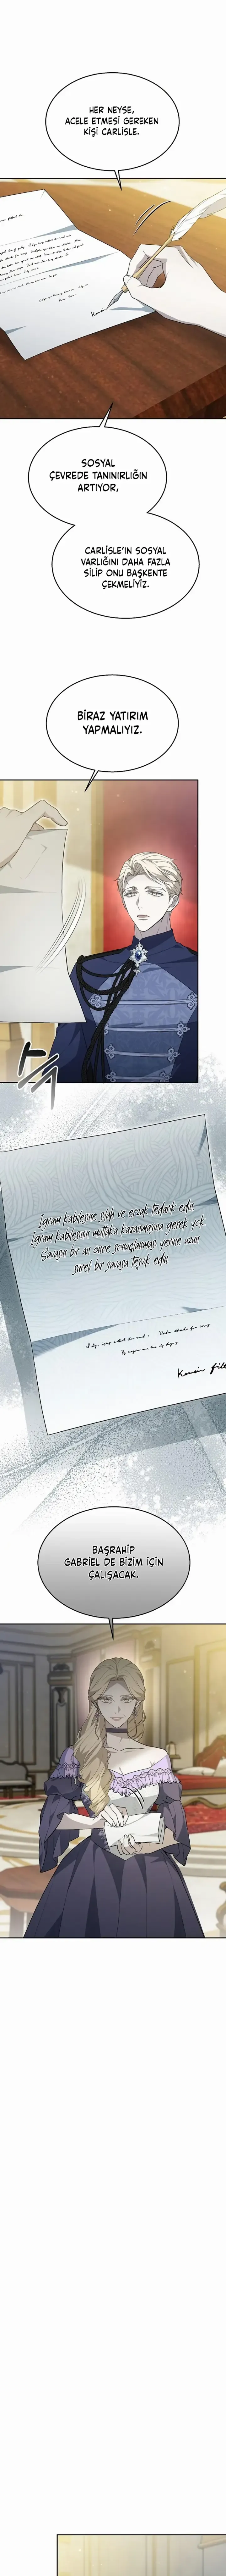 HER NEYSE,
ACELE ETMESİ GEREKEN
KİŞİ CARLISLE.
SOSYAL
ÇEVREDE TANINIRLIĞIN
ARTIYOR,
CARLISLE'IN SOSYAL
VARLIĞINI DAHA FAZLA
SİLİP ONU BAŞKENTE
ÇEKMELİYİZ.
BİRAZ YATIRIM
YAPMALIYIZ.
Igram kabilesine silah ve erzak tedarik edin.
Igram kabilesinin mutlaka kazanmasına gerek yok.
Savaşın bir an önce sonuçlanması yerine uzun
süreli bir savaşa teşvik edin.
BAŞRAHİP
GABRIEL DE BİZİM İÇİN
ÇALIŞACAK.